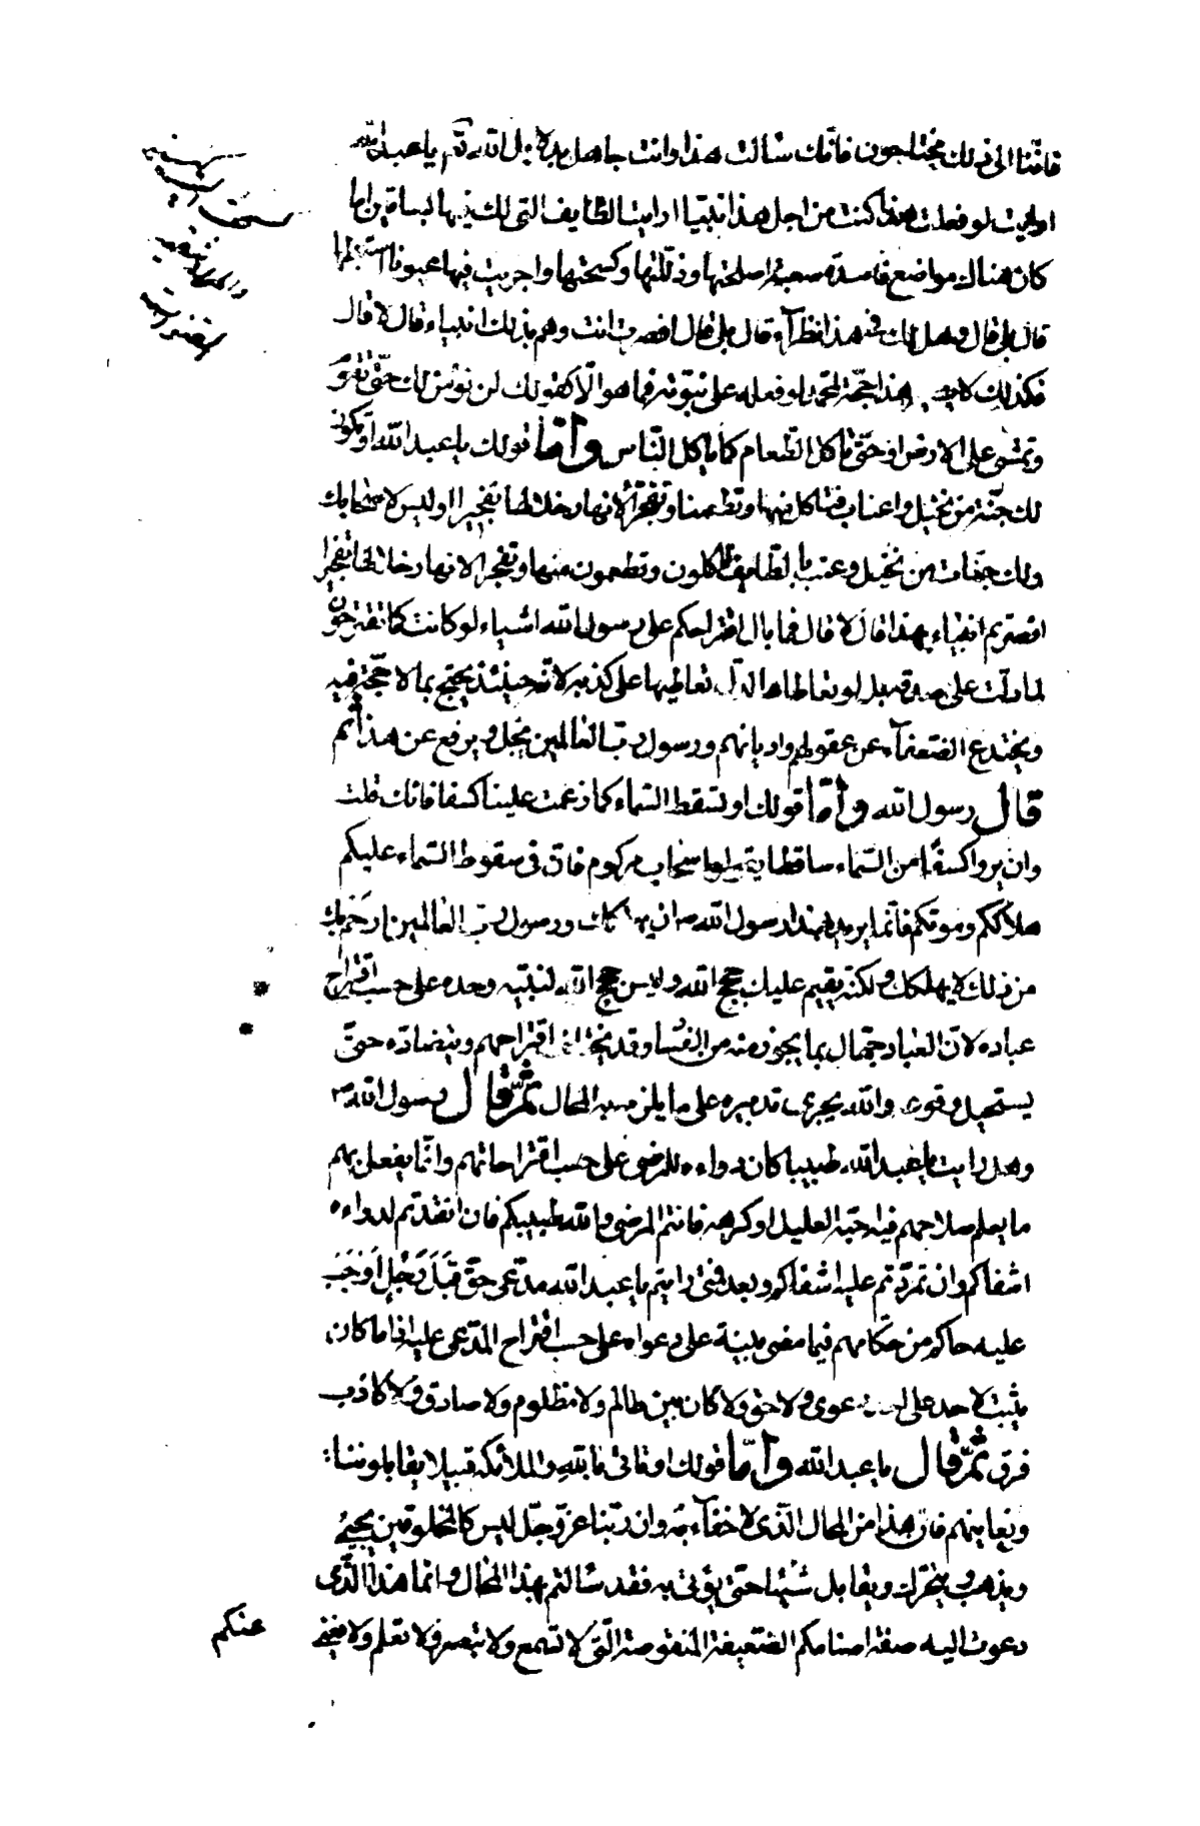 فانّنا الى ذلك محتاجون فانّك سألت هذا وانت جاهل بدلايل الله تم يا عبد الله
ارايت لو فعلت هذا كنت من اجل هذا نبيّا ارايت الطايف التى لك فيها بساتين اما
كان هناك مواضع فاسدة صعبة اصلحتها وذلّلتها وكسحتها واجريت فيها عيونا استنبطتها
قال بلى قال وهل لك فى هذا نظرآء قال بلى قال افصرت انت وهم بذلك انبياء قال لا قال
فكذلك لا يصير هذا حجّة لمحمّد لو فعله على نبوّته فما هو الّا كقولك لن نؤمن لك حتّى تقوم
وتمشى على الارض او حتّى تاكل الطّعام كما ياكل النّاس وامّا قولك يا عبد الله او تكون
لك جنّة من نخيل واعناب فتاكل منها وتطعمنا وتفجّر الانهار خلالها تفجيرا اوليس لاصحابك
ولك جنّات من نخيل وعنب بالطّايف تاكلون وتطعمون منها وتفجر الانهار خلالها تفجيرا
افصرتم انبياء بهذا قال لا قال فما بال اقتراحكم على رسول الله اشياء لو كانت كما تقترحون
لما دلّت على صدقه بل لو تعاطاها لدلّ تعاطيها على كذبه لانّه حينئذ يحتج بما لا حجّة فيه
ويختدع الضعفآء عن عقولهم واديانهم ورسول ربّ العالمين يجل ويرفع عن هذا ثم
قال رسول الله وامّا قولك او تسقط السّماء كما زعمت علينا كسفا فانّك قلت
وان يروا كسفًا من السّماء ساقطا يقولوا سحاب مركوم فانّ فى سقوط السّماء عليكم
هلاككم وموتكم فانّما تريد بهذا من رسول الله ان يهلكك ورسول ربّ العالمين ارحم بك
من ذلك لا يهلكك ولكنّه يقيم عليك حجج الله وليس حجج الله لنبيّه وحده على حسب اقتراح
عباده لانّ العباد جهّال بما يجوز منه من الفساد وقد يختلف اقتراحهم ويتضادّ حتى
يستحيل وقوعه والله يجرى تدبيره على ما يلزم به المحال ثمّ قال رسول الله
وهل رايت يا عبد الله طبيبا كان دواءه للمرضى على حسب اقتراحاتهم وانّما يفعل بهم
ما يعلم صلاحهم فيه احبّه العليل او كرهه فانتم المرضى والله طبيبكم فان انقدتم لدواءه
اشفاكم وان تمرّدتم عليه اشقاكم وبعد فمتى رايتم يا عبد الله مدّعى حقّ قبل رجل اوجب
عليه حاكم من حكّامهم فيما مضى بيّنة على دعواه على حسب اقتراح المدّعى عليه اذا ما كان
يثبت لاحد على احد دعوى ولا حق ولا كان بين ظالم ولا مظلوم ولا صادق ولا كاذب
فرق ثمّ قال يا عبد الله وامّا قولك او تاتى بالله والملائكة قبيلا يقابلوننا
ونعاينهم فانّ هذا من المحال الّذى لا خفآء به وان ربّنا عزّ وجلّ ليس كالمخلوقين يجيئ
ويذهب ويتحرّك ويقابل شيئا حتّى يؤتى به فقد سألتم بهذا المحال وانما هذا الّذى
دعوت اليه صفة اصنامكم الضّعيفة المنقوصة الّتى لا تسمع ولا تبصر ولا تعلم ولا تغنى
عنكم